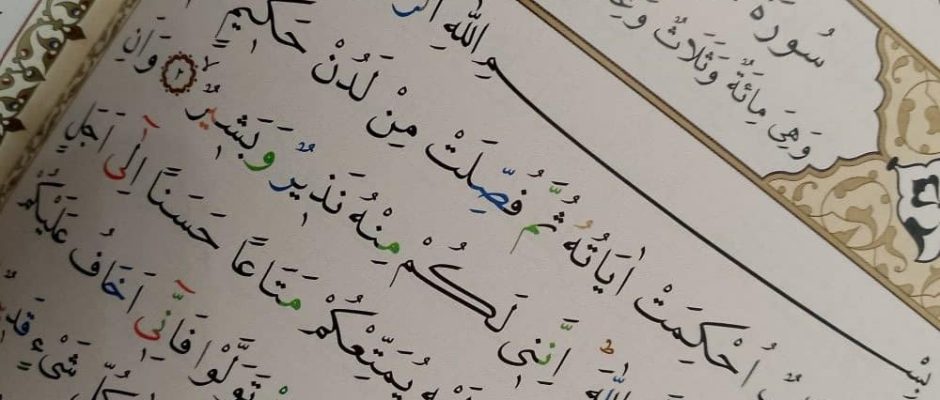 سُورَةُ
وَهِيَ مِائَةٌ وَثَلَاثٌ
اللّٰهِ
اُحْكِمَتْ اٰيَاتُهُ ثُمَّ فُصِّلَتْ مِنْ لَدُنْ حَكِيمٍ
اللّٰهَ اِنَّنٖى لَكُمْ مِنْهُ نَذٖيرٌ وَبَشٖيرٌۙ ٢ وَاَنِ
يُمَتِّعْكُمْ مَتَاعًا حَسَنًا اِلٰٓى اَجَلٍ
تَوَلَّوْا فَاِنّٖٓى اَخَافُ عَلَيْكُمْ
كُلِّ شَىْءٍ